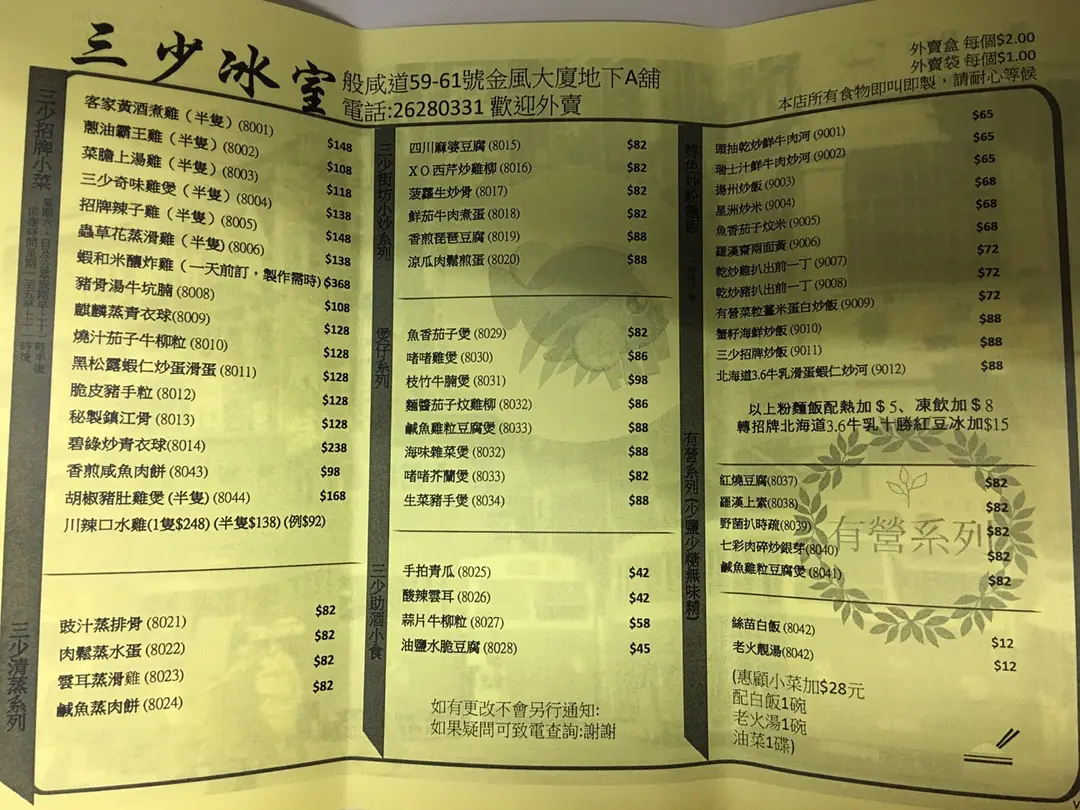 三少冰室
般咸道59-61號金風大廈地下A舖
電話:26280331 歡迎外賣
外賣盒 每個$2.00
外賣袋 每個$1.00
本店所有食物即叫即製，請耐心等候
三少招牌小菜
客家黃酒煮雞（半隻）(8001) $148
蔥油霸王雞（半隻）(8002) $108
菜膽上湯雞（半隻）(8003) $118
三少奇味雞煲（半隻）(8004) $138
招牌辣子雞（半隻）(8005) $148
蟲草花蒸滑雞（半隻）(8006) $138
蝦和米釀炸雞（一天前訂，製作需時) $368
豬骨湯牛坑腩 (8008) $108
麒麟蒸青衣球(8009) $128
燒汁茄子牛柳粒 (8010) $128
黑松露蝦仁炒蛋滑蛋 (8011) $128
脆皮豬手粒 (8012) $128
秘製鎮江骨 (8013) $128
碧綠炒青衣球(8014) $238
香煎咸魚肉餅 (8043) $98
胡椒豬肚雞煲 (半隻) (8044) $168
川辣口水雞(1隻$248) (半隻$138) (例$92)
三少清蒸系列
豉汁蒸排骨 (8021) $82
肉鬆蒸水蛋 (8022) $82
雲耳蒸滑雞 (8023) $82
鹹魚蒸肉餅 (8024) $82
三少街坊小炒系列
四川麻婆豆腐 (8015) $82
ＸＯ西芹炒雞柳 (8016) $82
菠蘿生炒骨 (8017) $82
鮮茄牛肉煮蛋 (8018) $82
香煎琵琶豆腐 (8019) $88
涼瓜肉鬆煎蛋 (8020) $88
煲仔系列
魚香茄子煲 (8029) $82
啫啫雞煲 (8030) $86
枝竹牛腩煲 (8031) $98
麵醬茄子炆雞柳 (8032) $86
鹹魚雞粒豆腐煲 (8033) $88
海味雜菜煲 (8032) $88
啫啫芥蘭煲 (8033) $82
生菜豬手煲 (8034) $88
三少助酒小食
手拍青瓜 (8025) $42
酸辣雲耳 (8026) $42
蒜片牛柳粒 (8027) $58
油鹽水脆豆腐 (8028) $45
如有更改不會另行通知:
如果疑問可致電查詢:謝謝
特色炒粉麵飯
頭抽乾炒鮮牛肉河 (9001) $65
瑞士汁鮮牛肉炒河 (9002) $65
揚州炒飯 (9003) $65
星洲炒米 (9004) $68
魚香茄子炆米 (9005) $68
羅漢齋兩面黃 (9006) $72
乾炒雞扒出前一丁 (9007) $72
乾炒豬扒出前一丁 (9008) $72
有營菜粒薑米蛋白炒飯 (9009) $88
蟹籽海鮮炒飯 (9010) $88
三少招牌炒飯 (9011) $88
北海道3.6牛乳滑蛋蝦仁炒河 (9012)
以上粉麵飯配熱加＄5、凍飲加＄8
轉招牌北海道3.6牛乳十勝紅豆冰加$15
有營系列 (少鹽少糖無味精)
有營系列
紅燒豆腐(8037) $82
羅漢上素(8038) $82
野菌扒時蔬(8039) $82
七彩肉碎炒銀芽(8040) $82
鹹魚雞粒豆腐煲 (8041) $82
絲苗白飯 (8042) $12
老火靚湯(8042) $12
(惠顧小菜加$28元
配白飯1碗
老火湯1碗
油菜1碟)